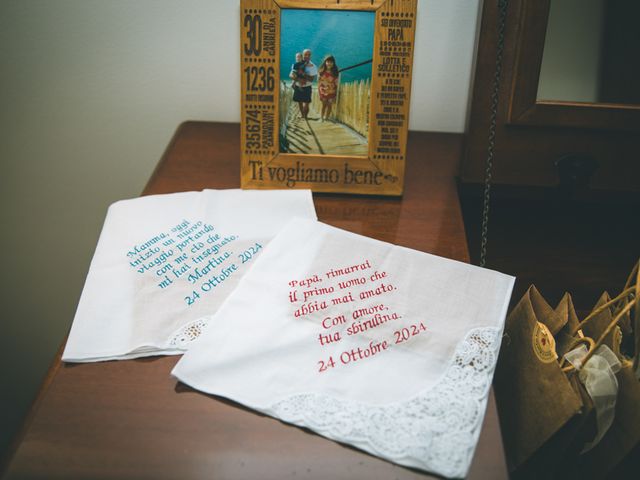 30
ANNI DI
CARRIERA
1236
35674
SEI DIVENTATO
PAPÀ
LOTTA E
SOLLETICO
Ti vogliamo bene
Mamma, oggi
inizio un nuovo
viaggio portando
con me ciò che
mi hai insegnato.
Martina.
24 Ottobre 2024
Papà, rimarrai
il primo uomo che
abbia mai amato.
Con amore,
tua sbirulina.
24 Ottobre 2024